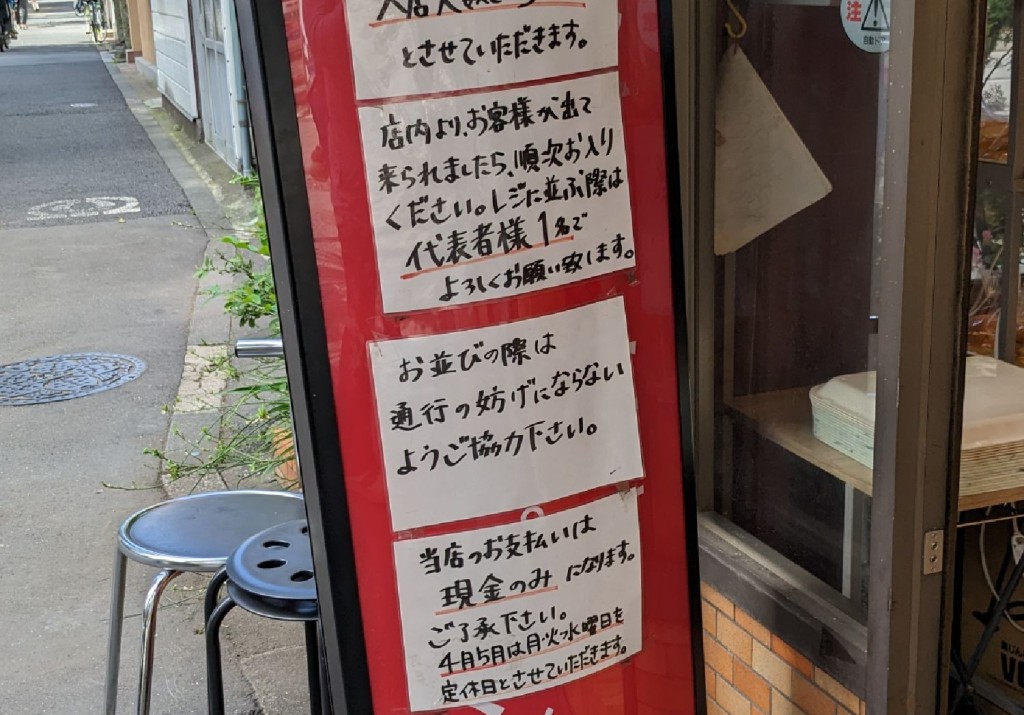 とさせていただきます。
店内より、お客様が出て
来られましたら、順次お入り
ください。レジに並ぶ際は
代表者様1名で
よろしくお願い致します。
お並びの際は
通行の妨げにならない
ようご協力下さい。
当店のお支払いは
現金のみになります。
ご了承下さい。
4月5月は月・火・水曜日を
定休日とさせていただきます。
注